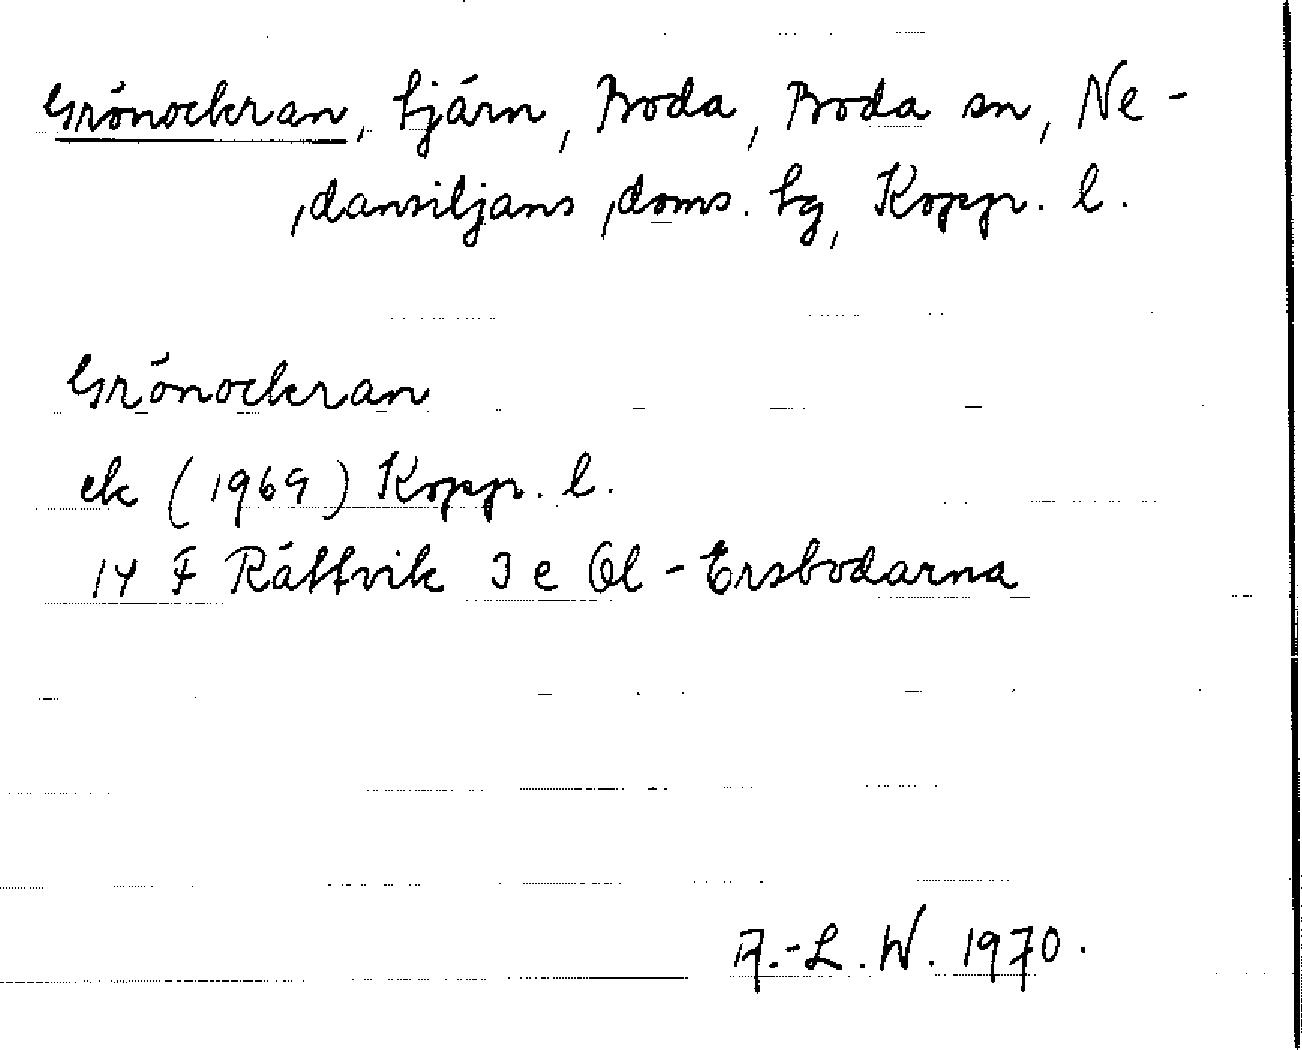 Grönockran, tjärn, Boda, Boda sn, Ne-
dansiljans doms. tg, Koppr. l.
Grönockran
ek (1969) Koppr. l.
14 F Rättvik 3 e Ol-Ersbodarna
A.-L. W. 1970.